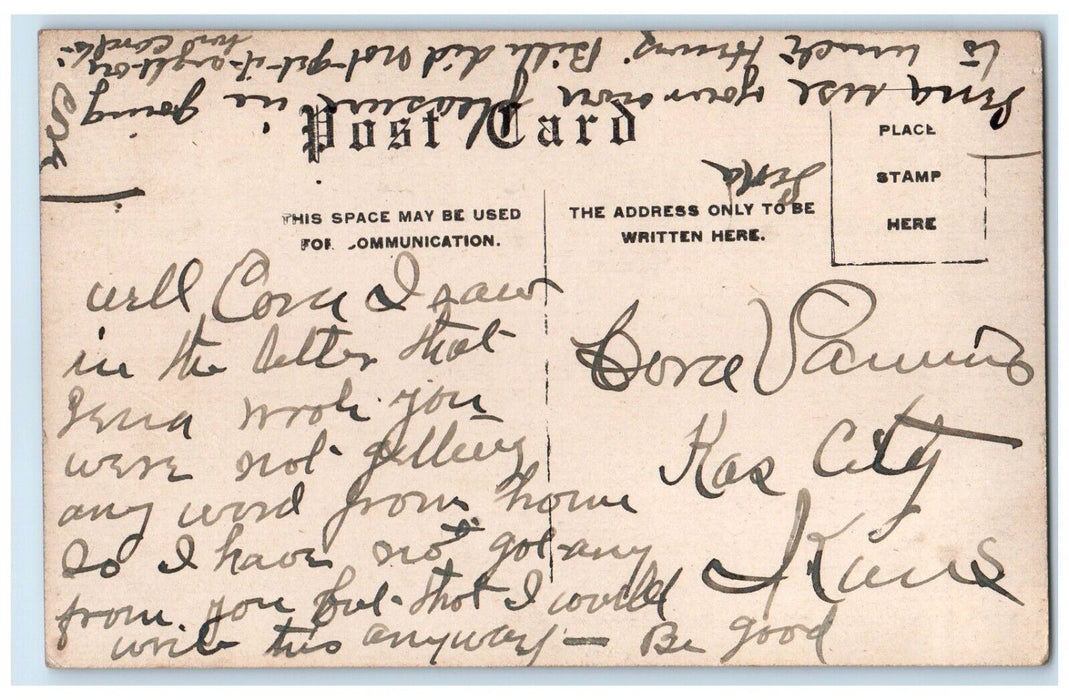 Post Card
PLACE
STAMP
HERE
THIS SPACE MAY BE USED
FOR COMMUNICATION.
THE ADDRESS ONLY TO BE
WRITTEN HERE.
well Cora I saw
in the letter that
Lena wrote you
were not getting
any word from home
so I have not got any
from you but that I would
write this anyway — Be good
Cora
Kas City
Kans
Lena use your own pleasure in going
to Bill did not get it